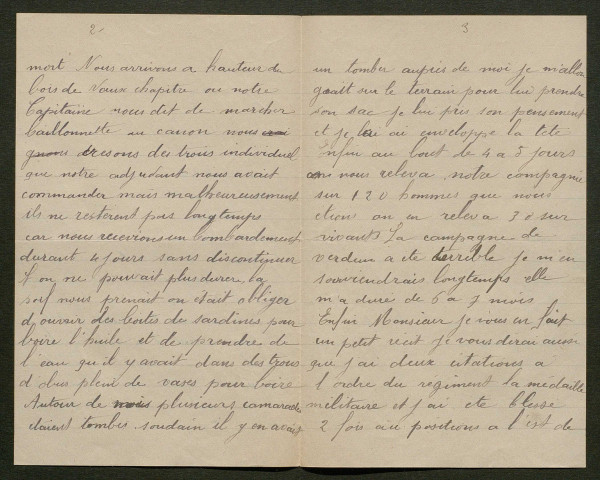 2
mort Nous arrivons a hauteur du
bois de Vaux chapitre ou notre
Capitaine nous dit de marcher
baillonnette au canon nous
cresons des trous individuel
que notre adjudant nous avait
commander mais malheureusement
ils ne restèrent pas longtemps
car nous recevions un bombardement
durant 4 jours sans discontinuer
on ne pouvait plus durer, la
soif nous prenait on était obliger
d'ouvrir des boites de sardines pour
boire l'huile et de prendre de
l'eau qu'il y avait dans des trous
d'obus plein de vases pour boire
Autour de nous plusieurs camarades
étaient tombés soudain il y en avait
3
un tomber aupres de moi je m'allon
geait sur le terrain pour lui prendre
son sac je lui pris son pensement
et je lui ai enveloppe la tete
Enfin au bout de 4 a 5 jours
on nous releva notre compagnie
sur 120 hommes que nous
etions on en releva 30 sur
vivants La campagne de
verdun a ete terrible je m'en
souviendrais longtemps elle
m'a duré de 6 a 7 mois
Enfin Monsieur je vous en fait
un petit recit je vous dirai aussi
que j'ai deux citations a
l'ordre du regiment la médaille
militaire et j'ai ete blesse
2 fois au positions a l'est de